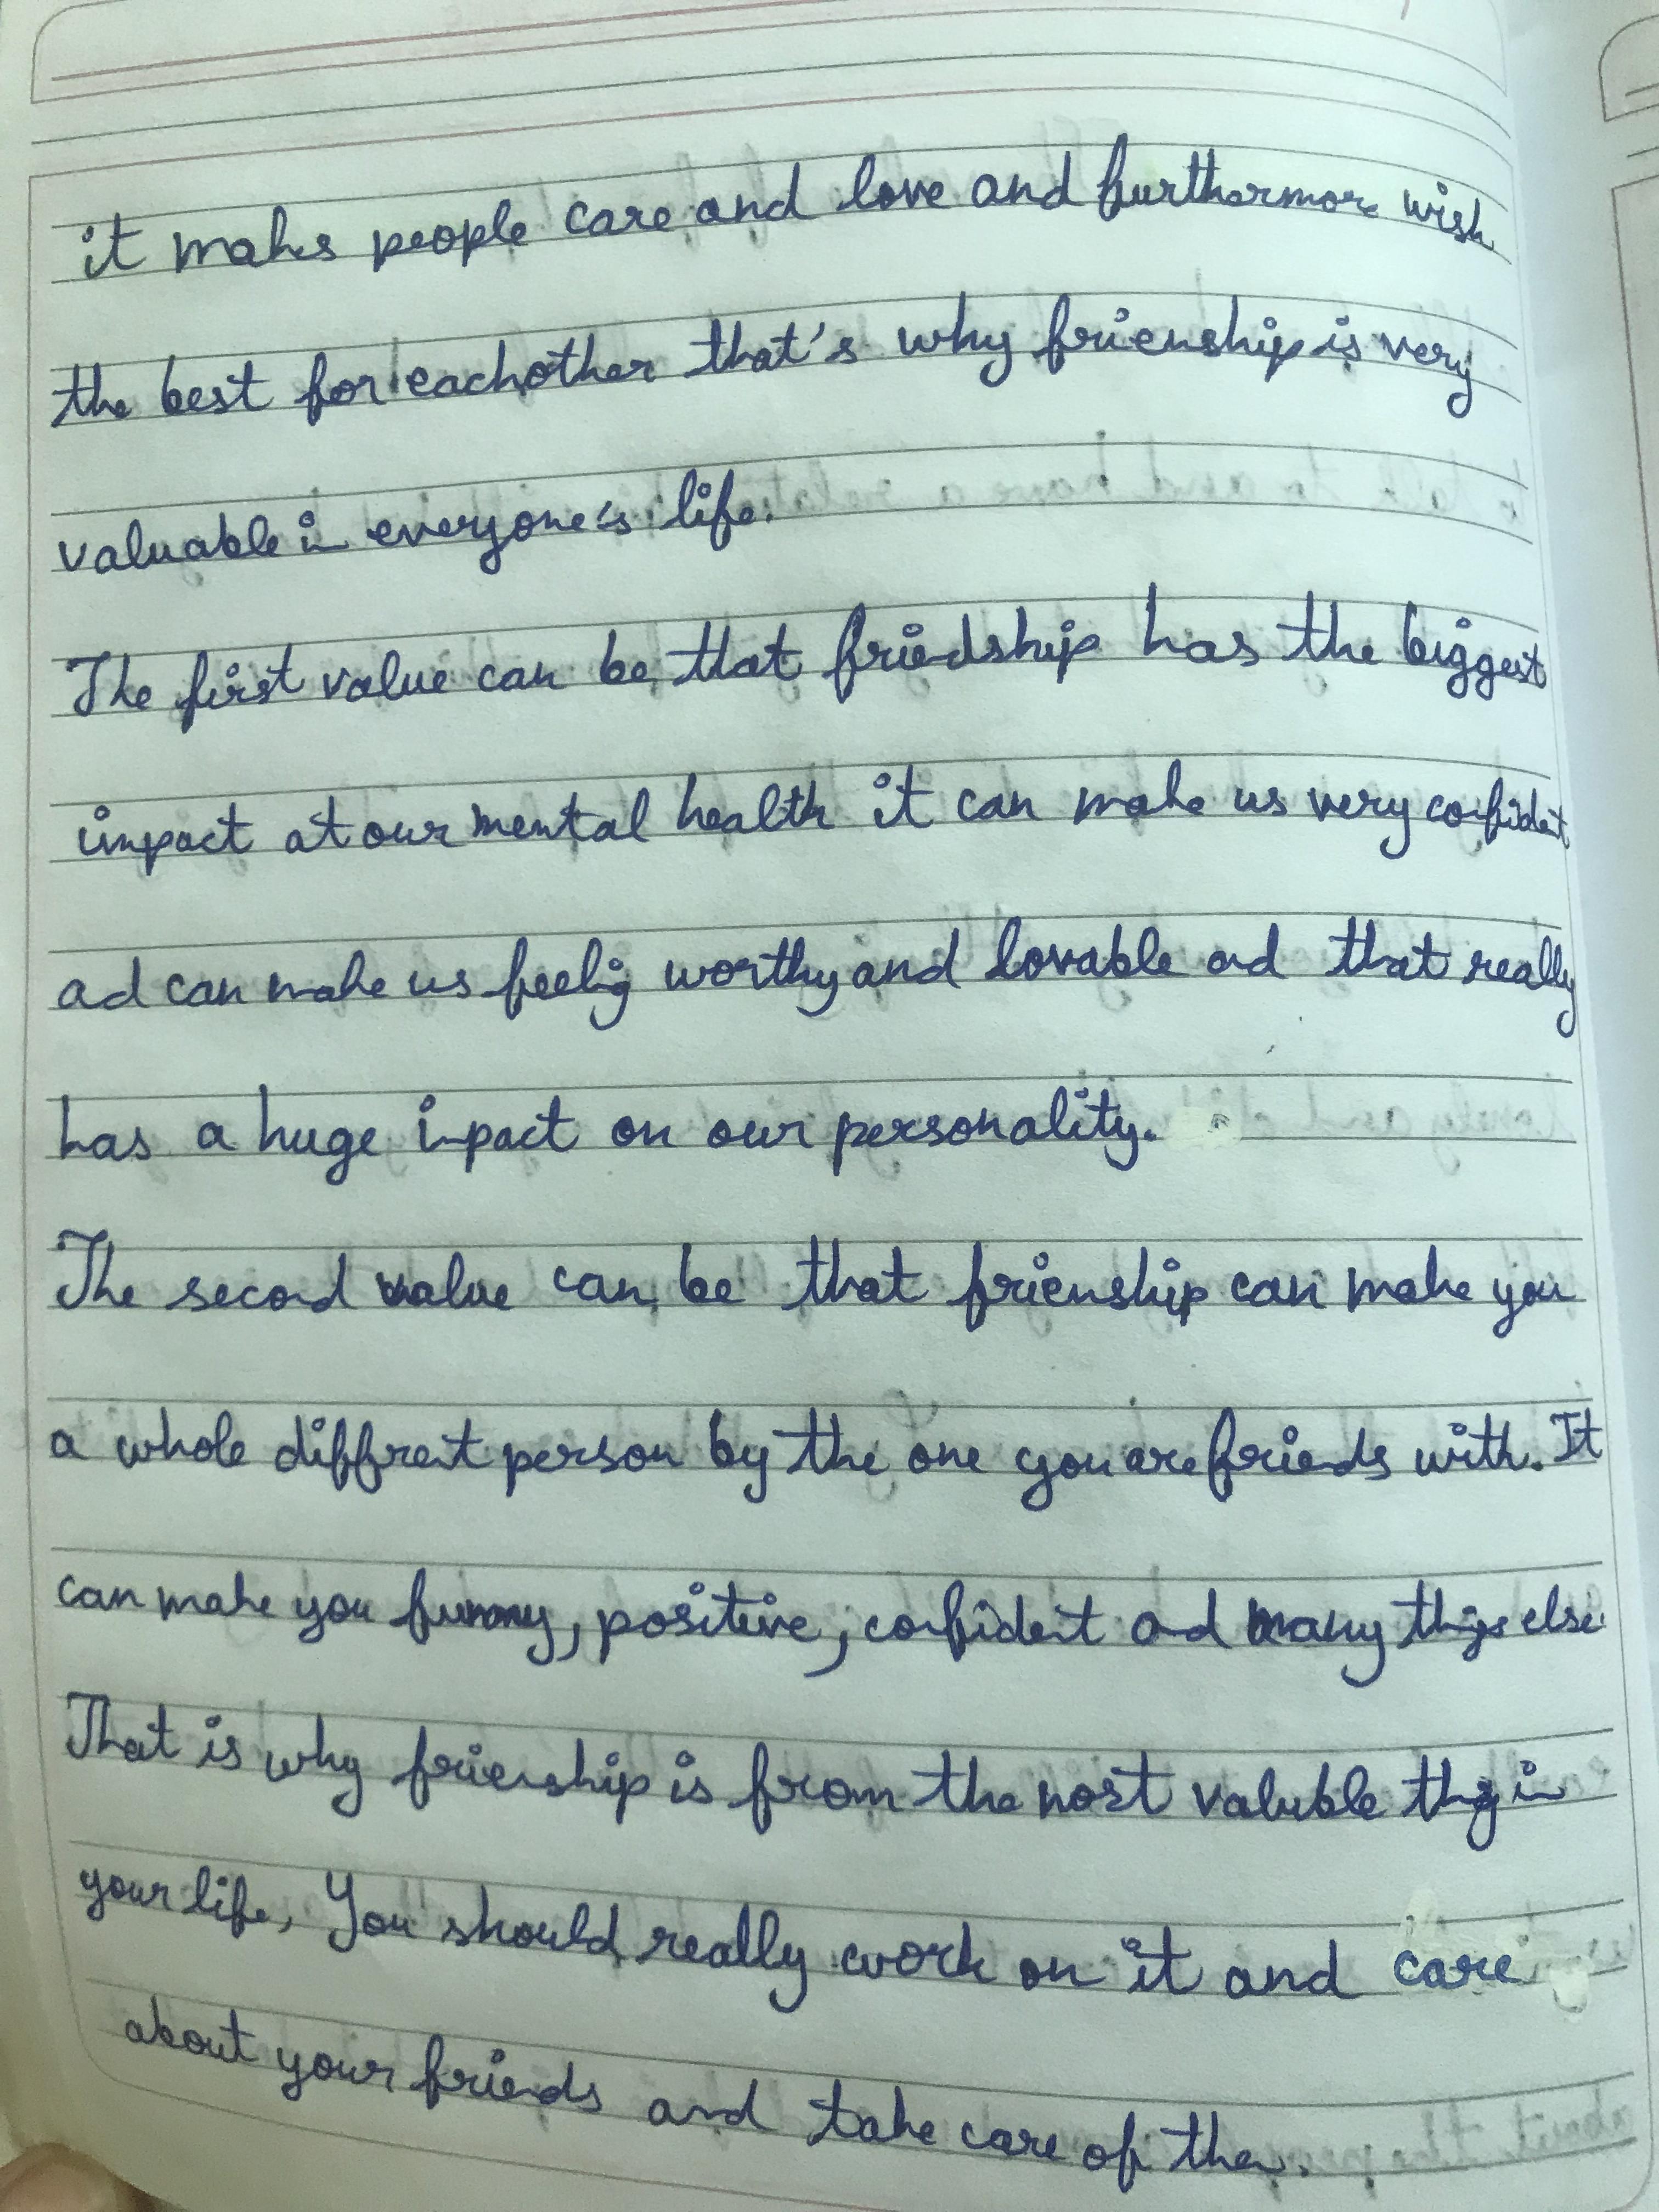 it makes people care and love and furthermore wish
the best for eachother that's why frienship is very
valuable in everyone's life.
The first value can be that friedship has the biggest
impact at our mental health it can make us very confident
ad can make us feelig worthy and lovable ad that really
has a huge impact on our personality.
The second value can be that frienship can make you
a whole diffrent person by the one you are friends with. It
can make you funny, positive, confident and many things else
That is why frienship is from the most valuble thing in
your life, You should really work on it and care
about your friends and take care of them.